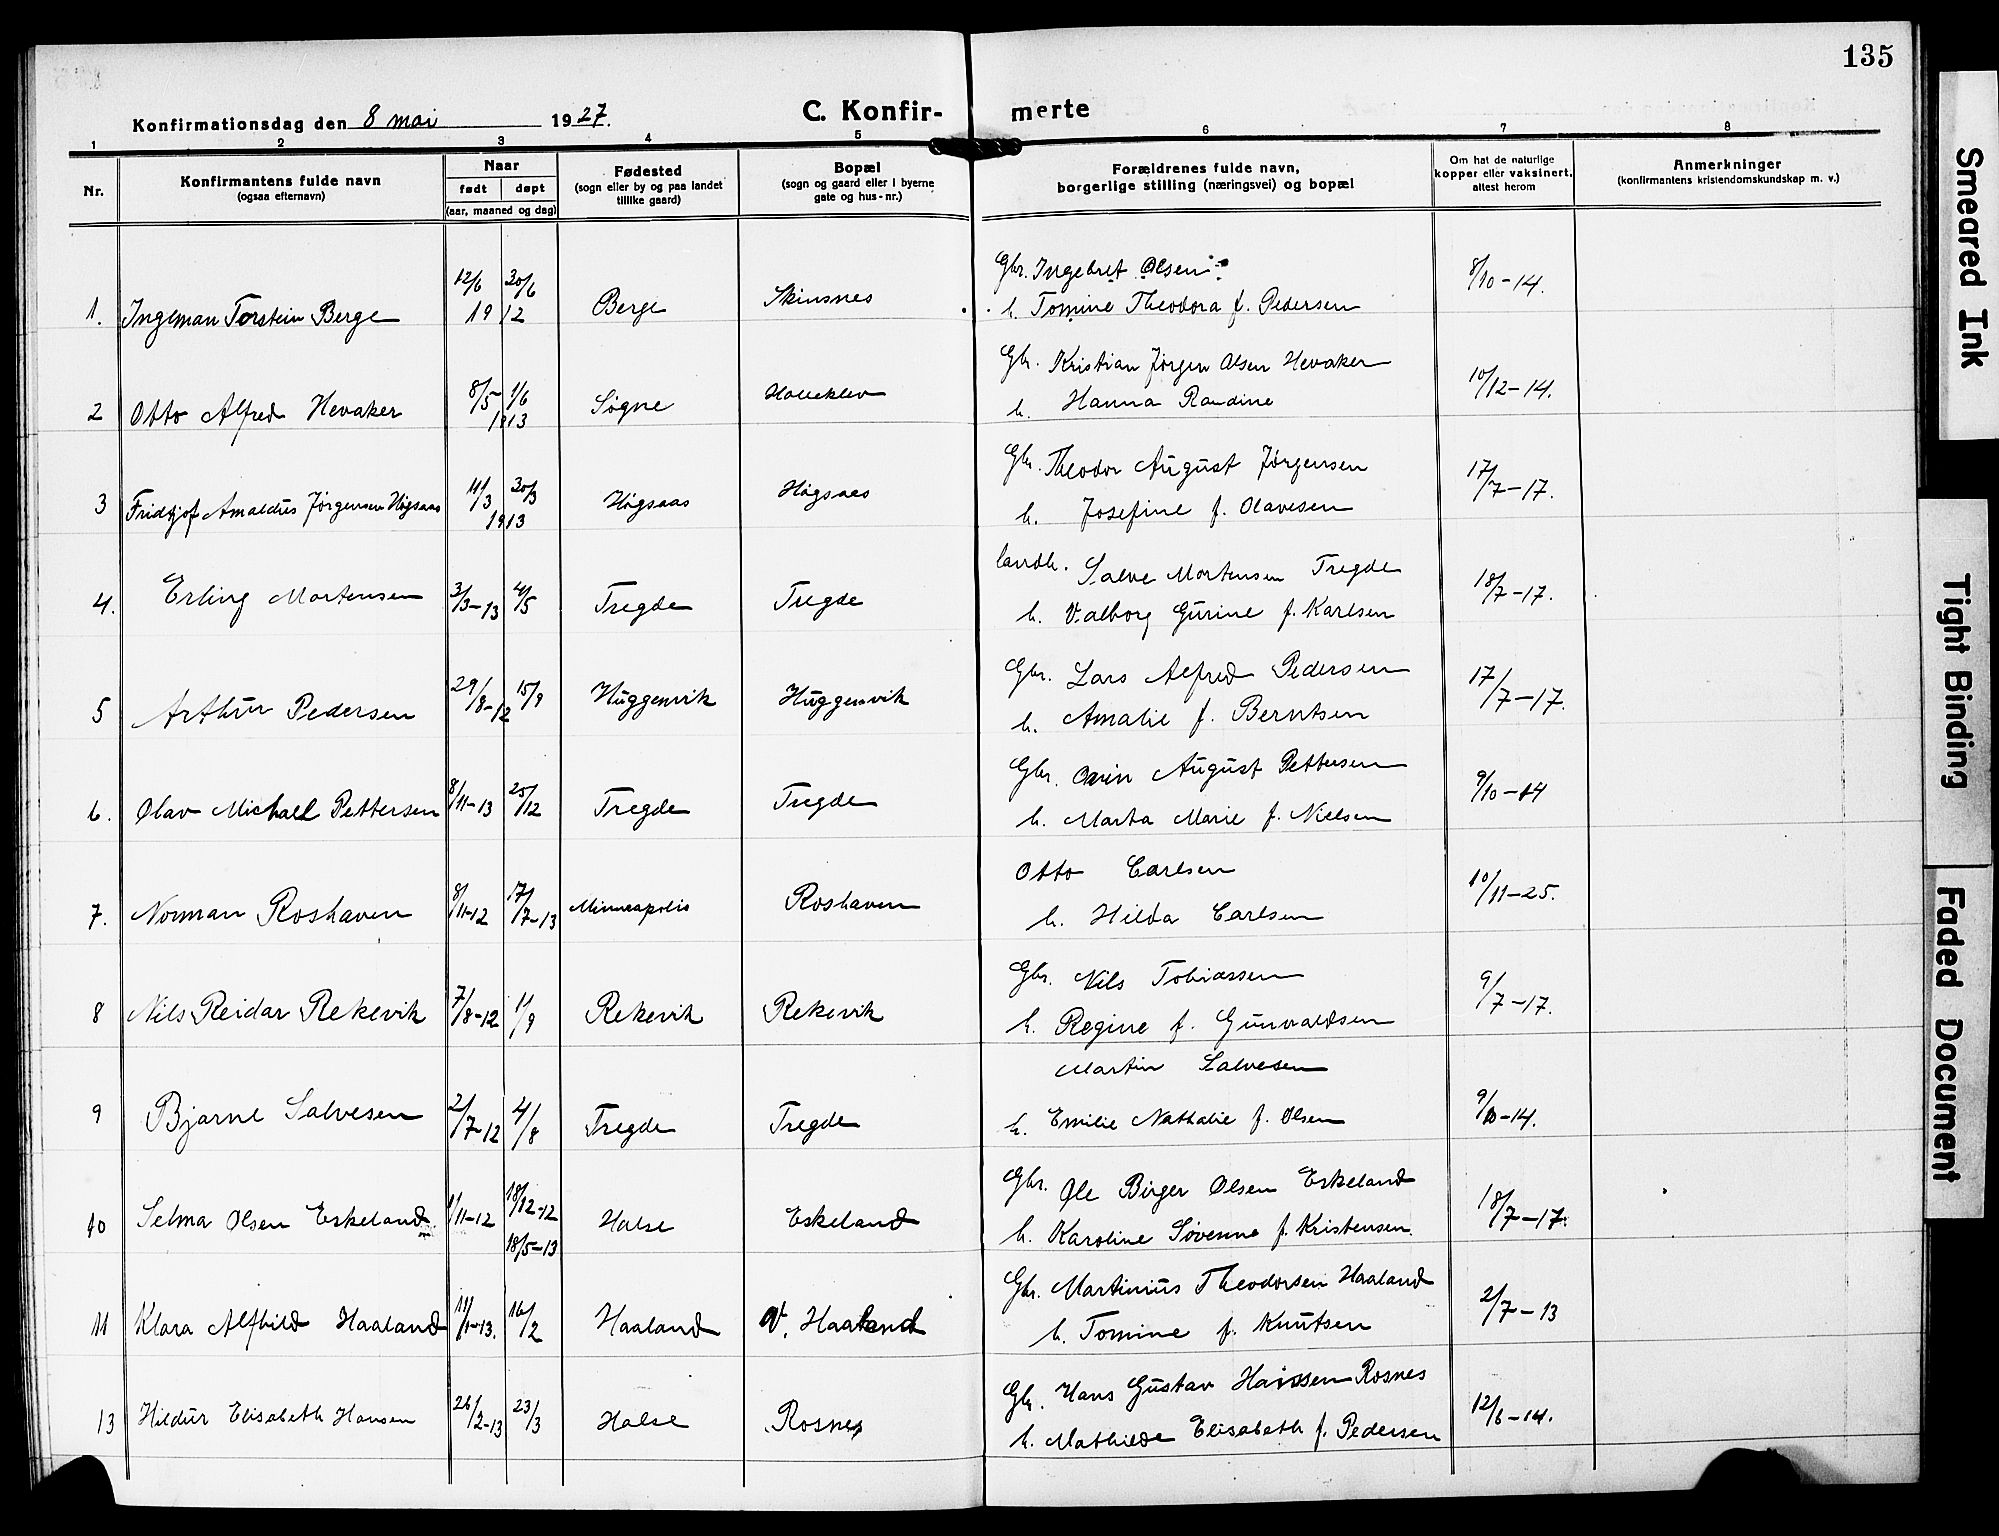 135
Konfirmationsdag den 8 mai 1927.
C. Konfir- merte
1 2 3 4 5 6 7 8
Nr.
Konfirmantens fulde navn
(ogsaa efternavn)
Naar
født døpt
(aar, maaned og dag)
Fødested
(sogn eller by og paa landet
tillike gaard)
Bopæl
(sogn og gaard eller i byerne
gate og hus-nr.)
Forældrenes fulde navn,
borgerlige stilling (næringsvei) og bopæl
Om hat de naturlige
kopper eller vaksinert,
attest herom
Anmerkninger
(konfirmantens kristendomskundskap m. v.)
12/6 20/6 Gbr. Ingebret Olsen 8/10-14.
1. Ingeman Torstein Berge 1912 Berge Skinsnes h. Tomine Theodora f. Pedersen
8/5 1/6 Gbr. Kristian Jørgen Olsen Hevaker 10/12-14.
2 Otto Alfred Hevaker 1913 Søgne h. Hanna Randine
11/3 30/3 Gbr. Theodor August Jørgensen 17/7-17.
3 Fridtjof Arnaldus Jørgensen Høgsaas 1913 Høgsaas Høgsnes h. Josefine f. Olavesen
landh. Salve Mortensen Tregde
4. Erling Mortensen 3/3-13 4/5 Tregde Tregde h. Valborg Gurine f. Karlsen 18/7-17.
Gbr. Lars Alfred Pedersen
5 Arthur Pedersen 29/8-12 15/9 Huggenvik Huggenvik h. Amalie f. Berntsen 17/7-17.
Gbr. August Pettersen
6. Olav Michael Pettersen 8/11-13 25/12 Tregde Tregde h. Marta Marie f. Nielsen 9/10-14
Otto Carlsen
7. Norman Roshaven 8/11-12 17/7-13 Minneapolis Roshaven h. Hilda Carlsen 10/11-25.
Gbr. Nils Tobiassen
8 Nils Reidar Rekevik 7/8-12 1/9 Rekevik Rekevik h. Regine f. Gunvaldsen 9/7-17.
Martin Salvesen
9 Bjarne Salvesen 2/7-12 4/8 Tregde Tregde h. Emilie Nathalie f. Olsen 9/10-14.
Gbr. Ole Birger Olsen Eskeland
10 Selma Olsen Eskeland 1/11-12 18/12-12 Halse Eskeland h. Karoline Søvenne f. Kristensen. 18/7-17.
18/5-13
Gbr. Martinius Theodorsen Haaland
11 Klara Alfhild Haaland 11/1-13. 16/2 Haaland V. Haaland h. Tomine f. Knutsen 2/7-13
Gbr. Hans Gustav Hanssen Rosnes
13 Hildur Elisabeth Hansen 26/2-13 23/3 Halse Rosnes h. Mathilde Elisabeth f. Pedersen 12/6-14.
Smeared Ink
Tight Binding
Faded Document